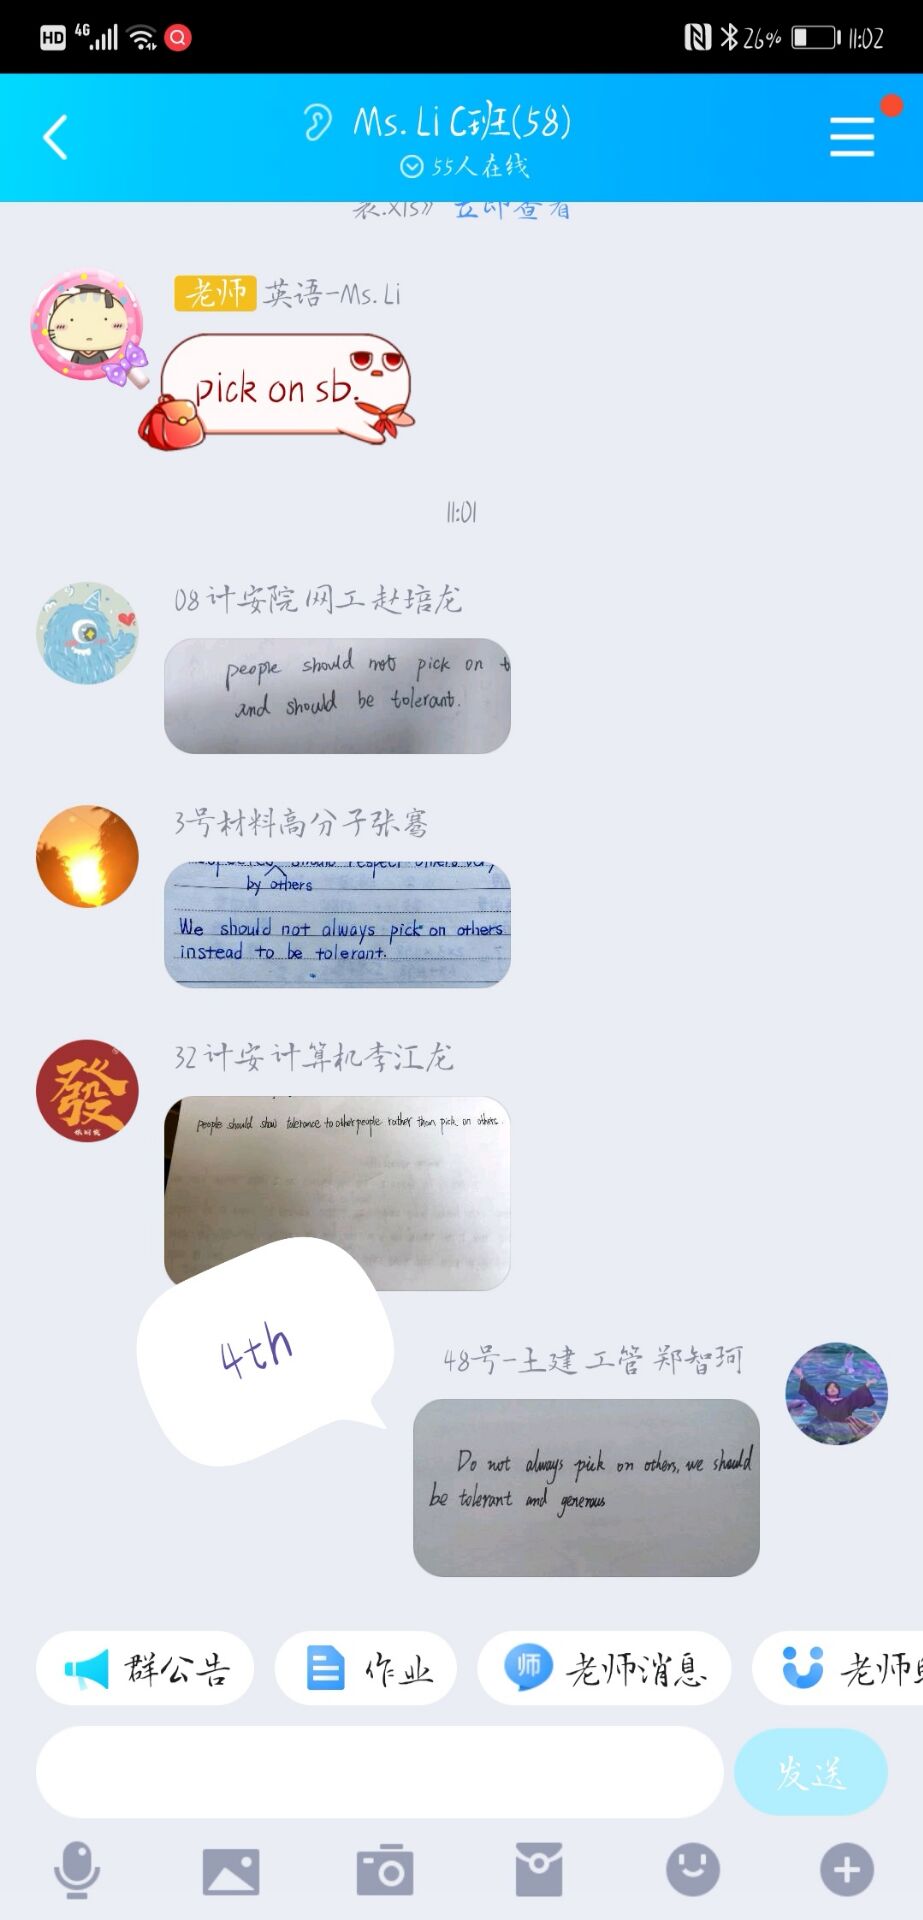 HD 4G 26% 11:02
Ms. Li C班(58)
55人在线
表.xls》 立即查看
老师 英语-Ms. Li
pick on sb.
11:01
08计安院网工赵培龙
people should not pick on
and should be tolerant.
3号材料高分子张骞
should respect others
by others
We should not always pick on others
instead to be tolerant.
32计安计算机李江龙
發
people should show tolerance to other people rather than pick on others.
4th
48号-土建工管郑智珂
Do not always pick on others, we should
be tolerant and generous
群公告 作业 师 老师消息 老师
发送